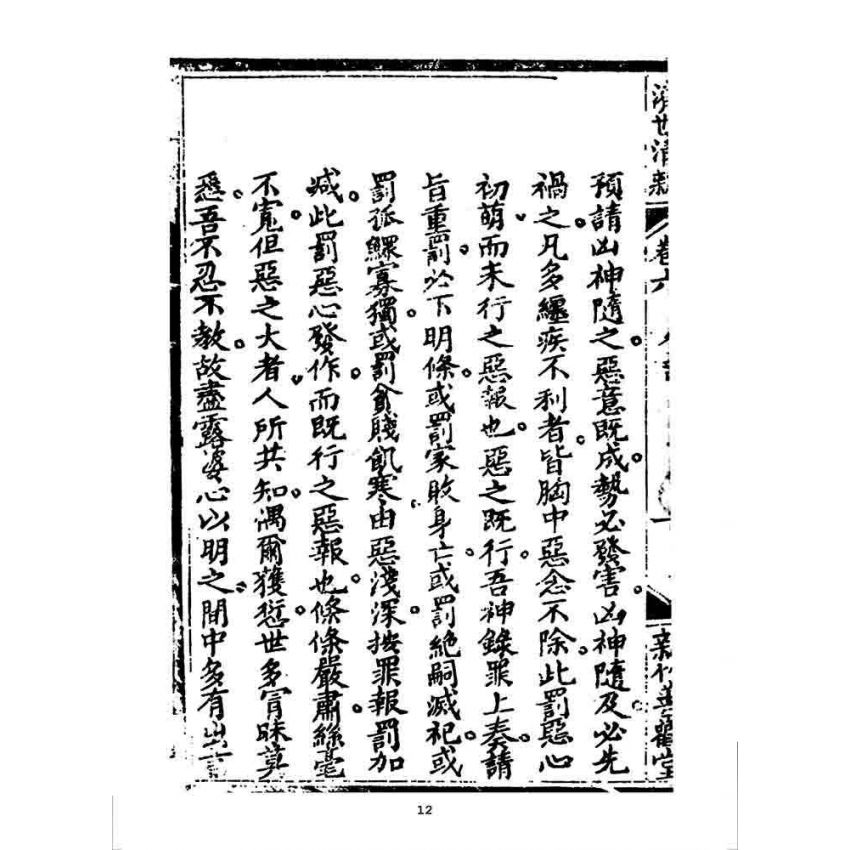 濟世清新 卷六
新竹善
預請凶神隨之。惡意既成勢必發害。凶神隨及必先
禍之。凡多纏疾不利者。皆胸中惡念不除。此罰惡心
初萌而未行之惡報也。惡之既行。吾神錄罪上奏。請
旨重罰。必下明條。或罰家敗身亡。或罰絕嗣滅祀。或
罰孤鰥寡獨。或罰貧賤飢寒。由惡淺深。按罪報罰加
減。此罰惡心發作而既行之惡報也。條條嚴肅。絲毫
不寬。但惡之大者。人所共知。偶爾獲愆。世多冒昧。
愚。吾不忍不教。故盡露婆心以明之。間中多有
12